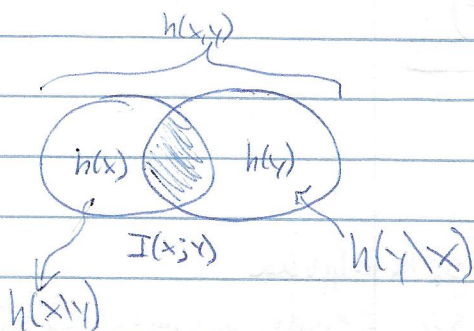 h(x,y)
h(x) h(y)
I(x;y)
h(y\x)
h(x\y)